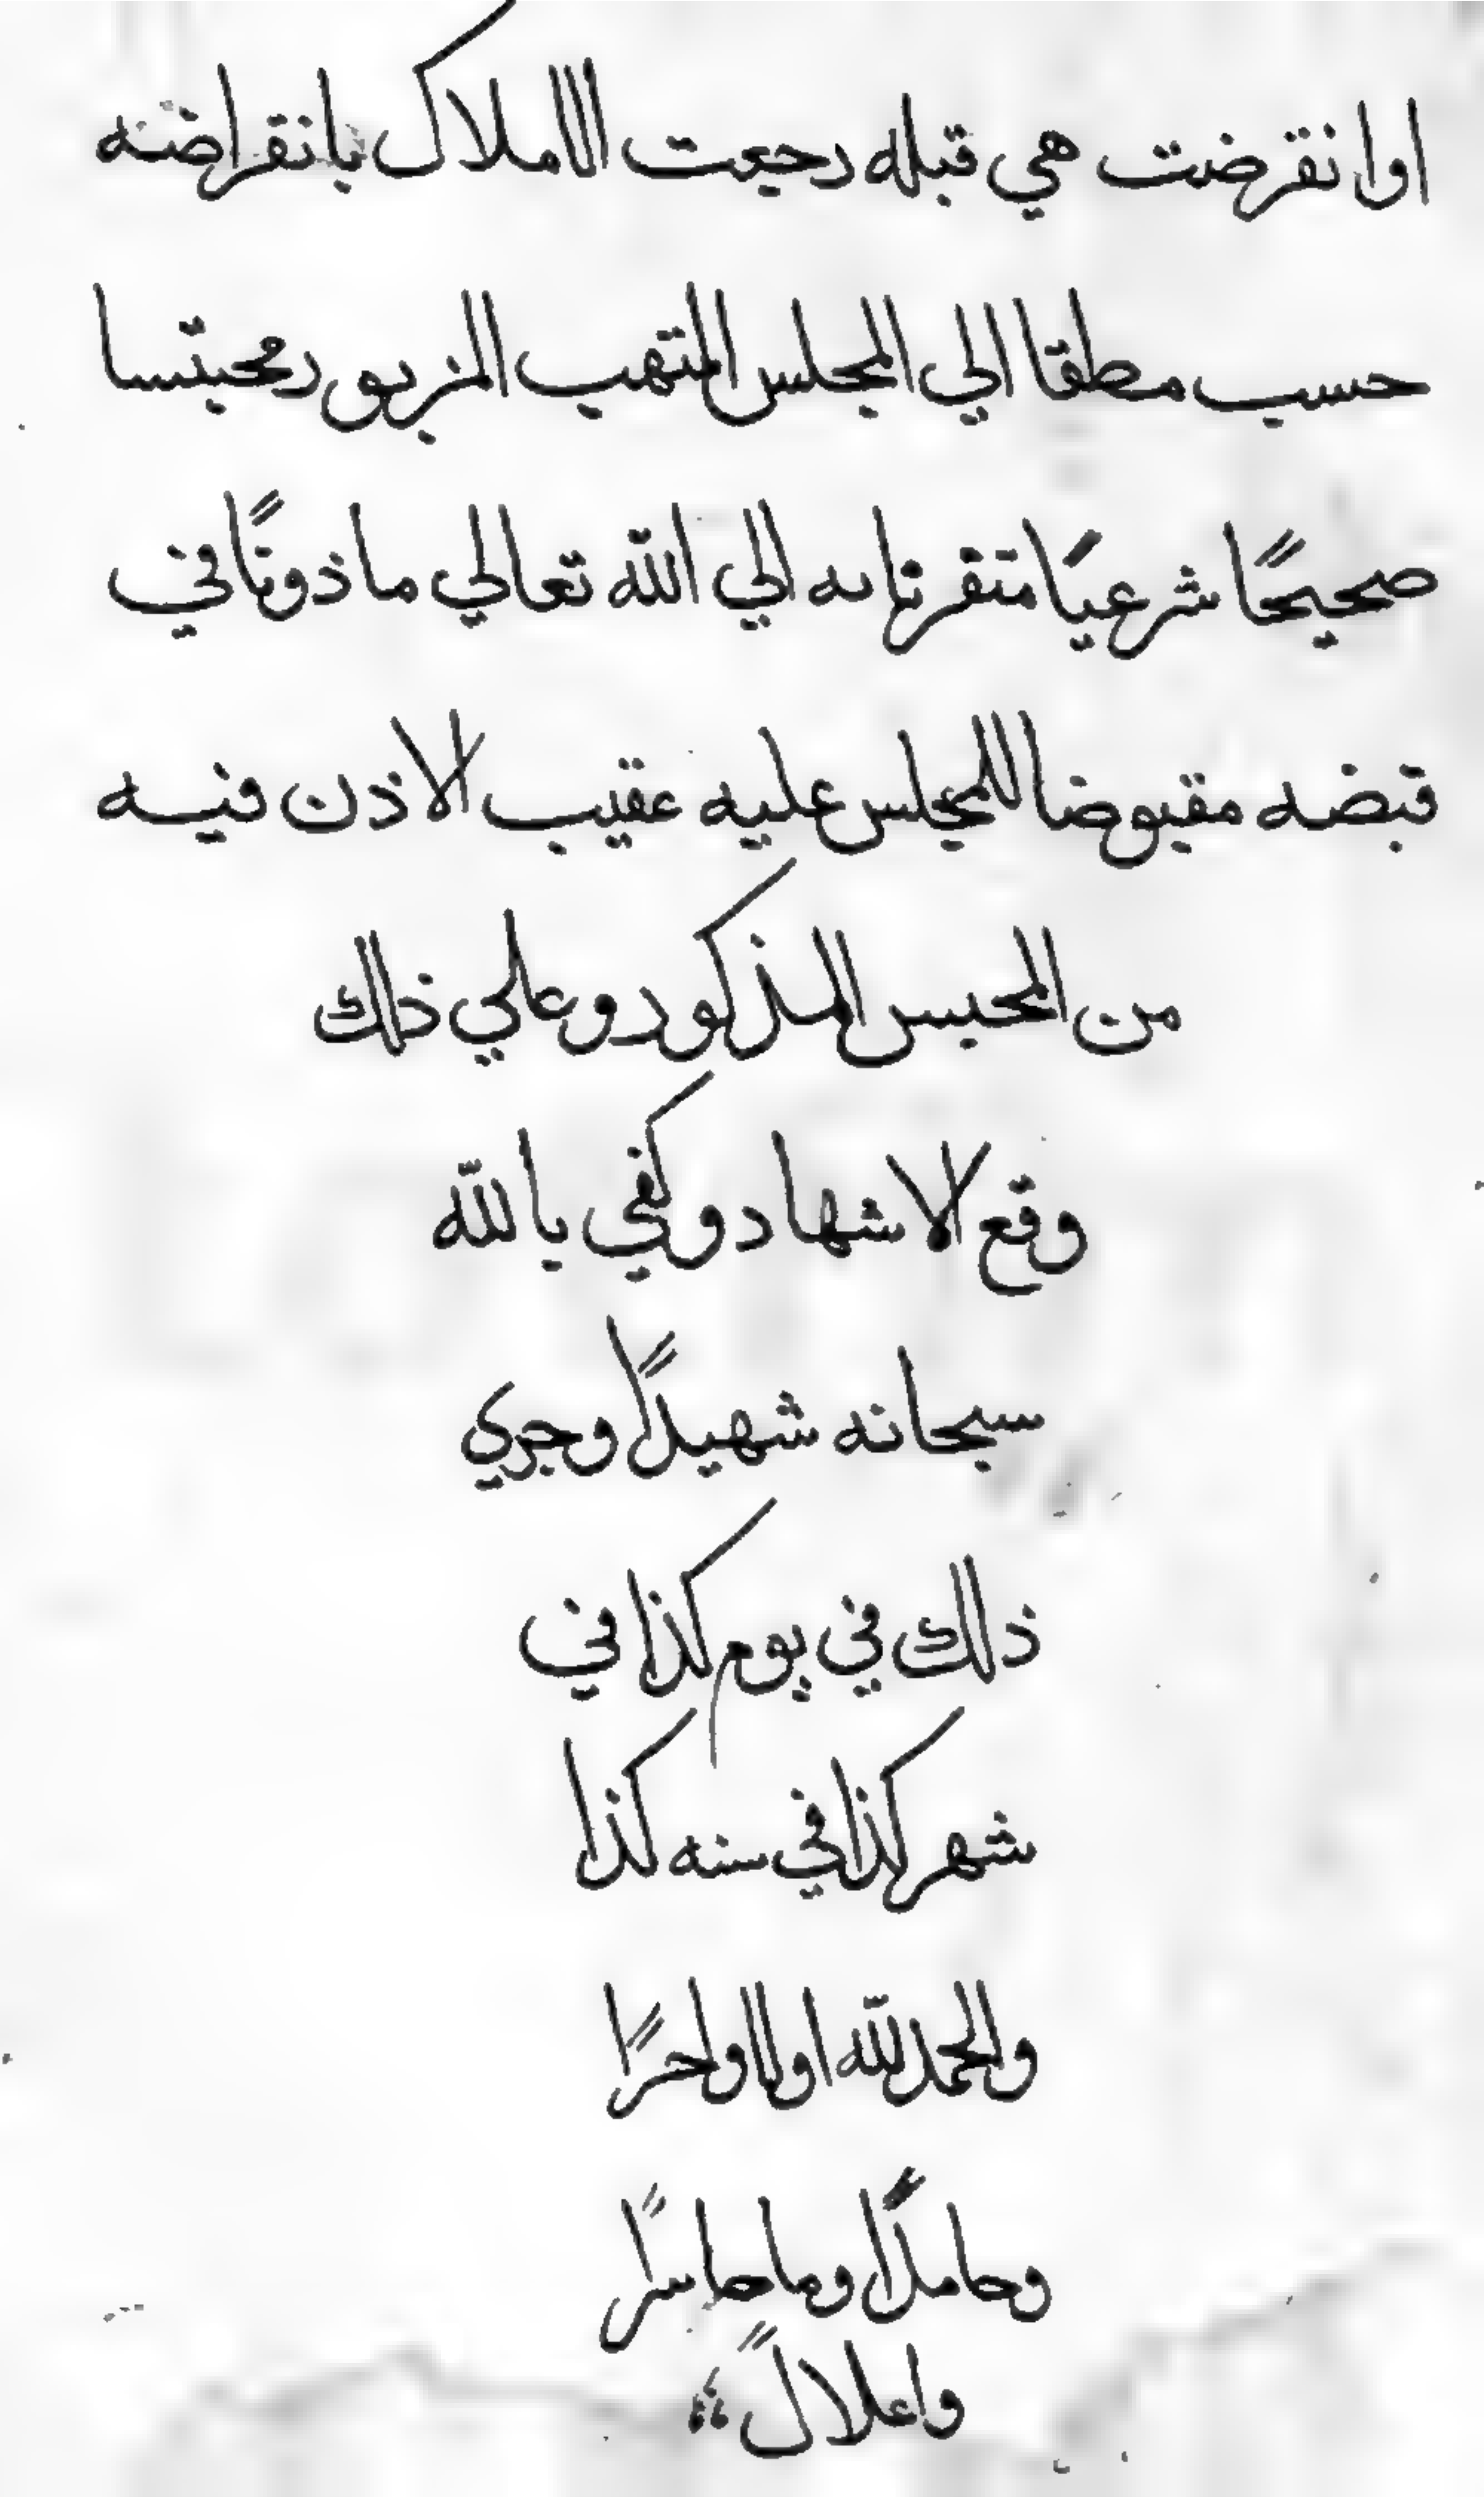 اوانقرضت هي قبله رحبعت الاملاك بانقراضه
حسب مطقا الي المجلس المتهب المزبور محبتسا
صحيحًا شرعيًا متقر الي الله تعالي ماذونًا في
قبضه مقبوضا للمجلس عليه عقيب الاذن فيه
من المحبس المذكور وعلي ذلك
وقع الاشهاد وكفي بالله
سبحانه شهيدًا وجري
ذلك في يوم كذا في
شهر كذا في سنه كذا
والحمد لله اولا واخرًا
وحامدًا